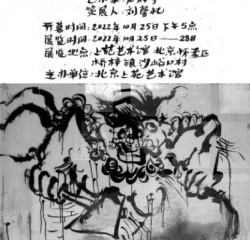 策展人：刘
开幕时间：2022年10月25日下午5点
展览时间：2022年10月25日——28日
展览地点：上苑艺术馆 北京怀柔区
桥梓镇沙峪口村
主办单位：北京上苑艺术馆